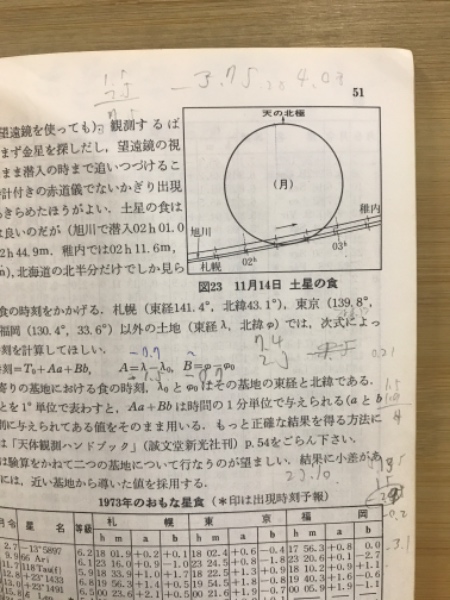 51
望遠鏡を使っても)，観測するば
まず金星を探しだし，望遠鏡の視
まま潜入の時まで追いつづけるこ
計付きの赤道儀でないかぎり出現
あきらめたほうがよい．土星の食は
良いのだが（旭川で潜入02h 01.0
2h44.9m．稚内では02h 11.6m，
，北海道の北半分だけでしか見ら
天の北極
（月）
稚内
旭川
札幌
02h
03h
図23　11月14日　土星の食
食の時刻をかかげる．札幌（東経141.4°，北緯43.1°），東京（139.8°，
福岡（130.4°，33.6°）以外の土地（東経λ，北緯φ）では，次式によっ
刻を計算してほしい．
刻=T₀+Aa+Bb,　A=λ−λ₀, B=φ−φ₀
寄りの基地における食の時刻，λ₀とφ₀はその基地の東経と北緯である．
とを1°単位で表わすと，Aa+Bbは時間の1分単位で与えられる(aとb
別に与えられてある値をそのまま用いる．もっと正確な結果を得る方法に
は「天体観測ハンドブック」（誠文堂新光社刊）p.54をごらん下さい．
は験算をかねて二つの基地について行なうのが望ましい．結果に小差があ
には，近い基地から導いた値を採用する．
1973年のおもな星食（＊印は出現時刻予報）
月令 星　名 等級 札　幌 東　京 福　岡
h m a b h m a b h m a b
2.7 −13°5897 6.2 18 01.9 +0.2 +0.1 18 02.4 +0.6 −0.4 17 56.3 +0.8 0.0
9.9 66 Ari 6.1 23 16.0 +0.9 −1.0 23 24.5 +0.8 −1.8 23 20.6 +0.1 −2.7
11.7 118 Tau 5.9 18 33.9 +1.0 +1.7 18 22.8 +0.9 +1.3 18 10.2 +0.9 +1.1
12.8 +23°1433 6.2 19 56.3 +1.4 +0.5 19 54.5 +1.8 −0.8 19 40.3 +1.6 −0.6